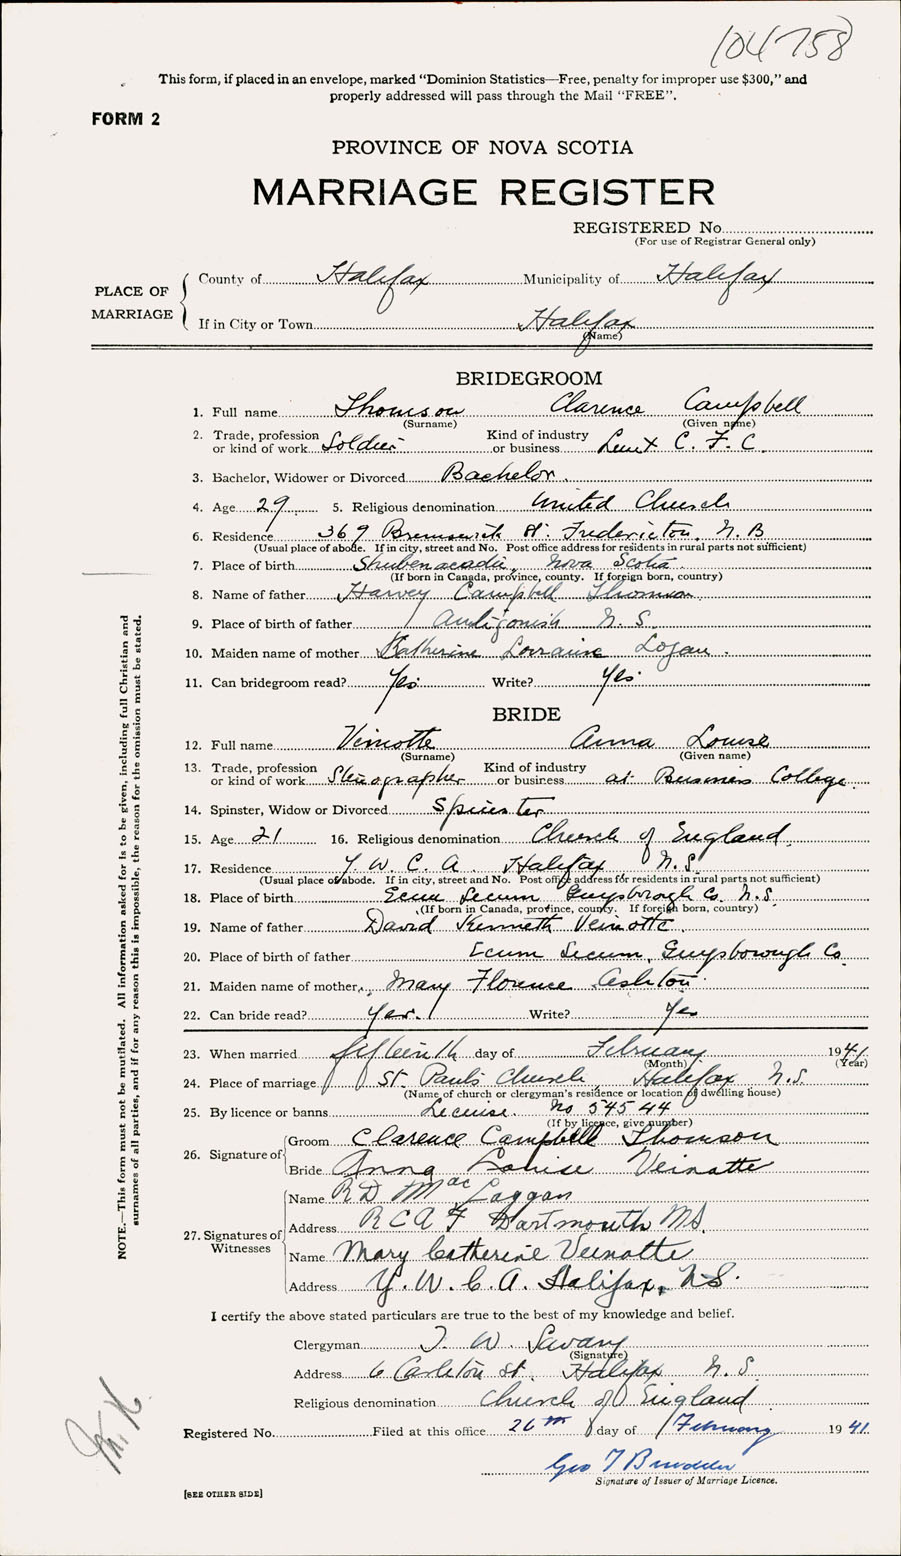 104758
This form, if placed in an envelope, marked "Dominion Statistics—Free, penalty for improper use $300," and
properly addressed will pass through the Mail "FREE".
FORM 2
PROVINCE OF NOVA SCOTIA
MARRIAGE REGISTER
REGISTERED No.
(For use of Registrar General only)
PLACE OF MARRIAGE
County of Halifax Municipality of Halifax
If in City or Town Halifax
(Name)
BRIDEGROOM
1. Full name Thomson Clarence Campbell
(Surname) (Given name)
2. Trade, profession or kind of work Soldier Kind of industry or business Lieut C. F. C.
3. Bachelor, Widower or Divorced Bachelor.
4. Age 29 5. Religious denomination United Church
6. Residence 369 Brunswick St. Fredericton, N. B
(Usual place of abode. If in city, street and No. Post office address for residents in rural parts not sufficient)
7. Place of birth Shubenacadie, Nova Scotia
(If born in Canada, province, county. If foreign born, country)
8. Name of father Harvey Campbell Thomson
9. Place of birth of father Antigonish N. S.
10. Maiden name of mother Katherine Lorraine Logan.
11. Can bridegroom read? Yes Write? Yes
BRIDE
12. Full name Veinotte Anna Louise
(Surname) (Given name)
13. Trade, profession or kind of work Stenographer Kind of industry or business at Business College.
14. Spinster, Widow or Divorced Spinster
15. Age 21 16. Religious denomination Church of England
17. Residence Y. W. C. A. Halifax N. S.
(Usual place of abode. If in city, street and No. Post office address for residents in rural parts not sufficient)
18. Place of birth Ecum Secum Guysborough Co. N.S.
(If born in Canada, province, county. If foreign born, country)
19. Name of father David Kenneth Veinotte
20. Place of birth of father Ecum Secum, Guysborough Co
21. Maiden name of mother Mary Florence Ashton
22. Can bride read? Yes. Write? Yes
23. When married fifteenth day of February 1941
(Month) (Year)
24. Place of marriage St. Paul's Church, Halifax N.S.
(Name of church or clergyman's residence or location of dwelling house)
25. By licence or banns License. No 54544
(If by licence, give number)
26. Signature of Groom Clarence Campbell Thomson
Bride Anna Louise Veinotte
27. Signatures of Witnesses
Name R D MacLaggan
Address R C A F Dartmouth N.S.
Name Mary Catherine Veinotte
Address Y. W. C. A. Halifax, N.S.
I certify the above stated particulars are true to the best of my knowledge and belief.
Clergyman T. W. Savary
(Signature)
Address 6 Carleton St. Halifax N. S.
Religious denomination Church of England
Registered No. Filed at this office 26th day of February 1941
Geo T
Signature of Issuer of Marriage Licence.
[SEE OTHER SIDE]
NOTE.—This form must not be mutilated. All information asked for is to be given, including full Christian and
surnames of all parties, and if for any reason this is impossible, the reason for the omission must be stated.